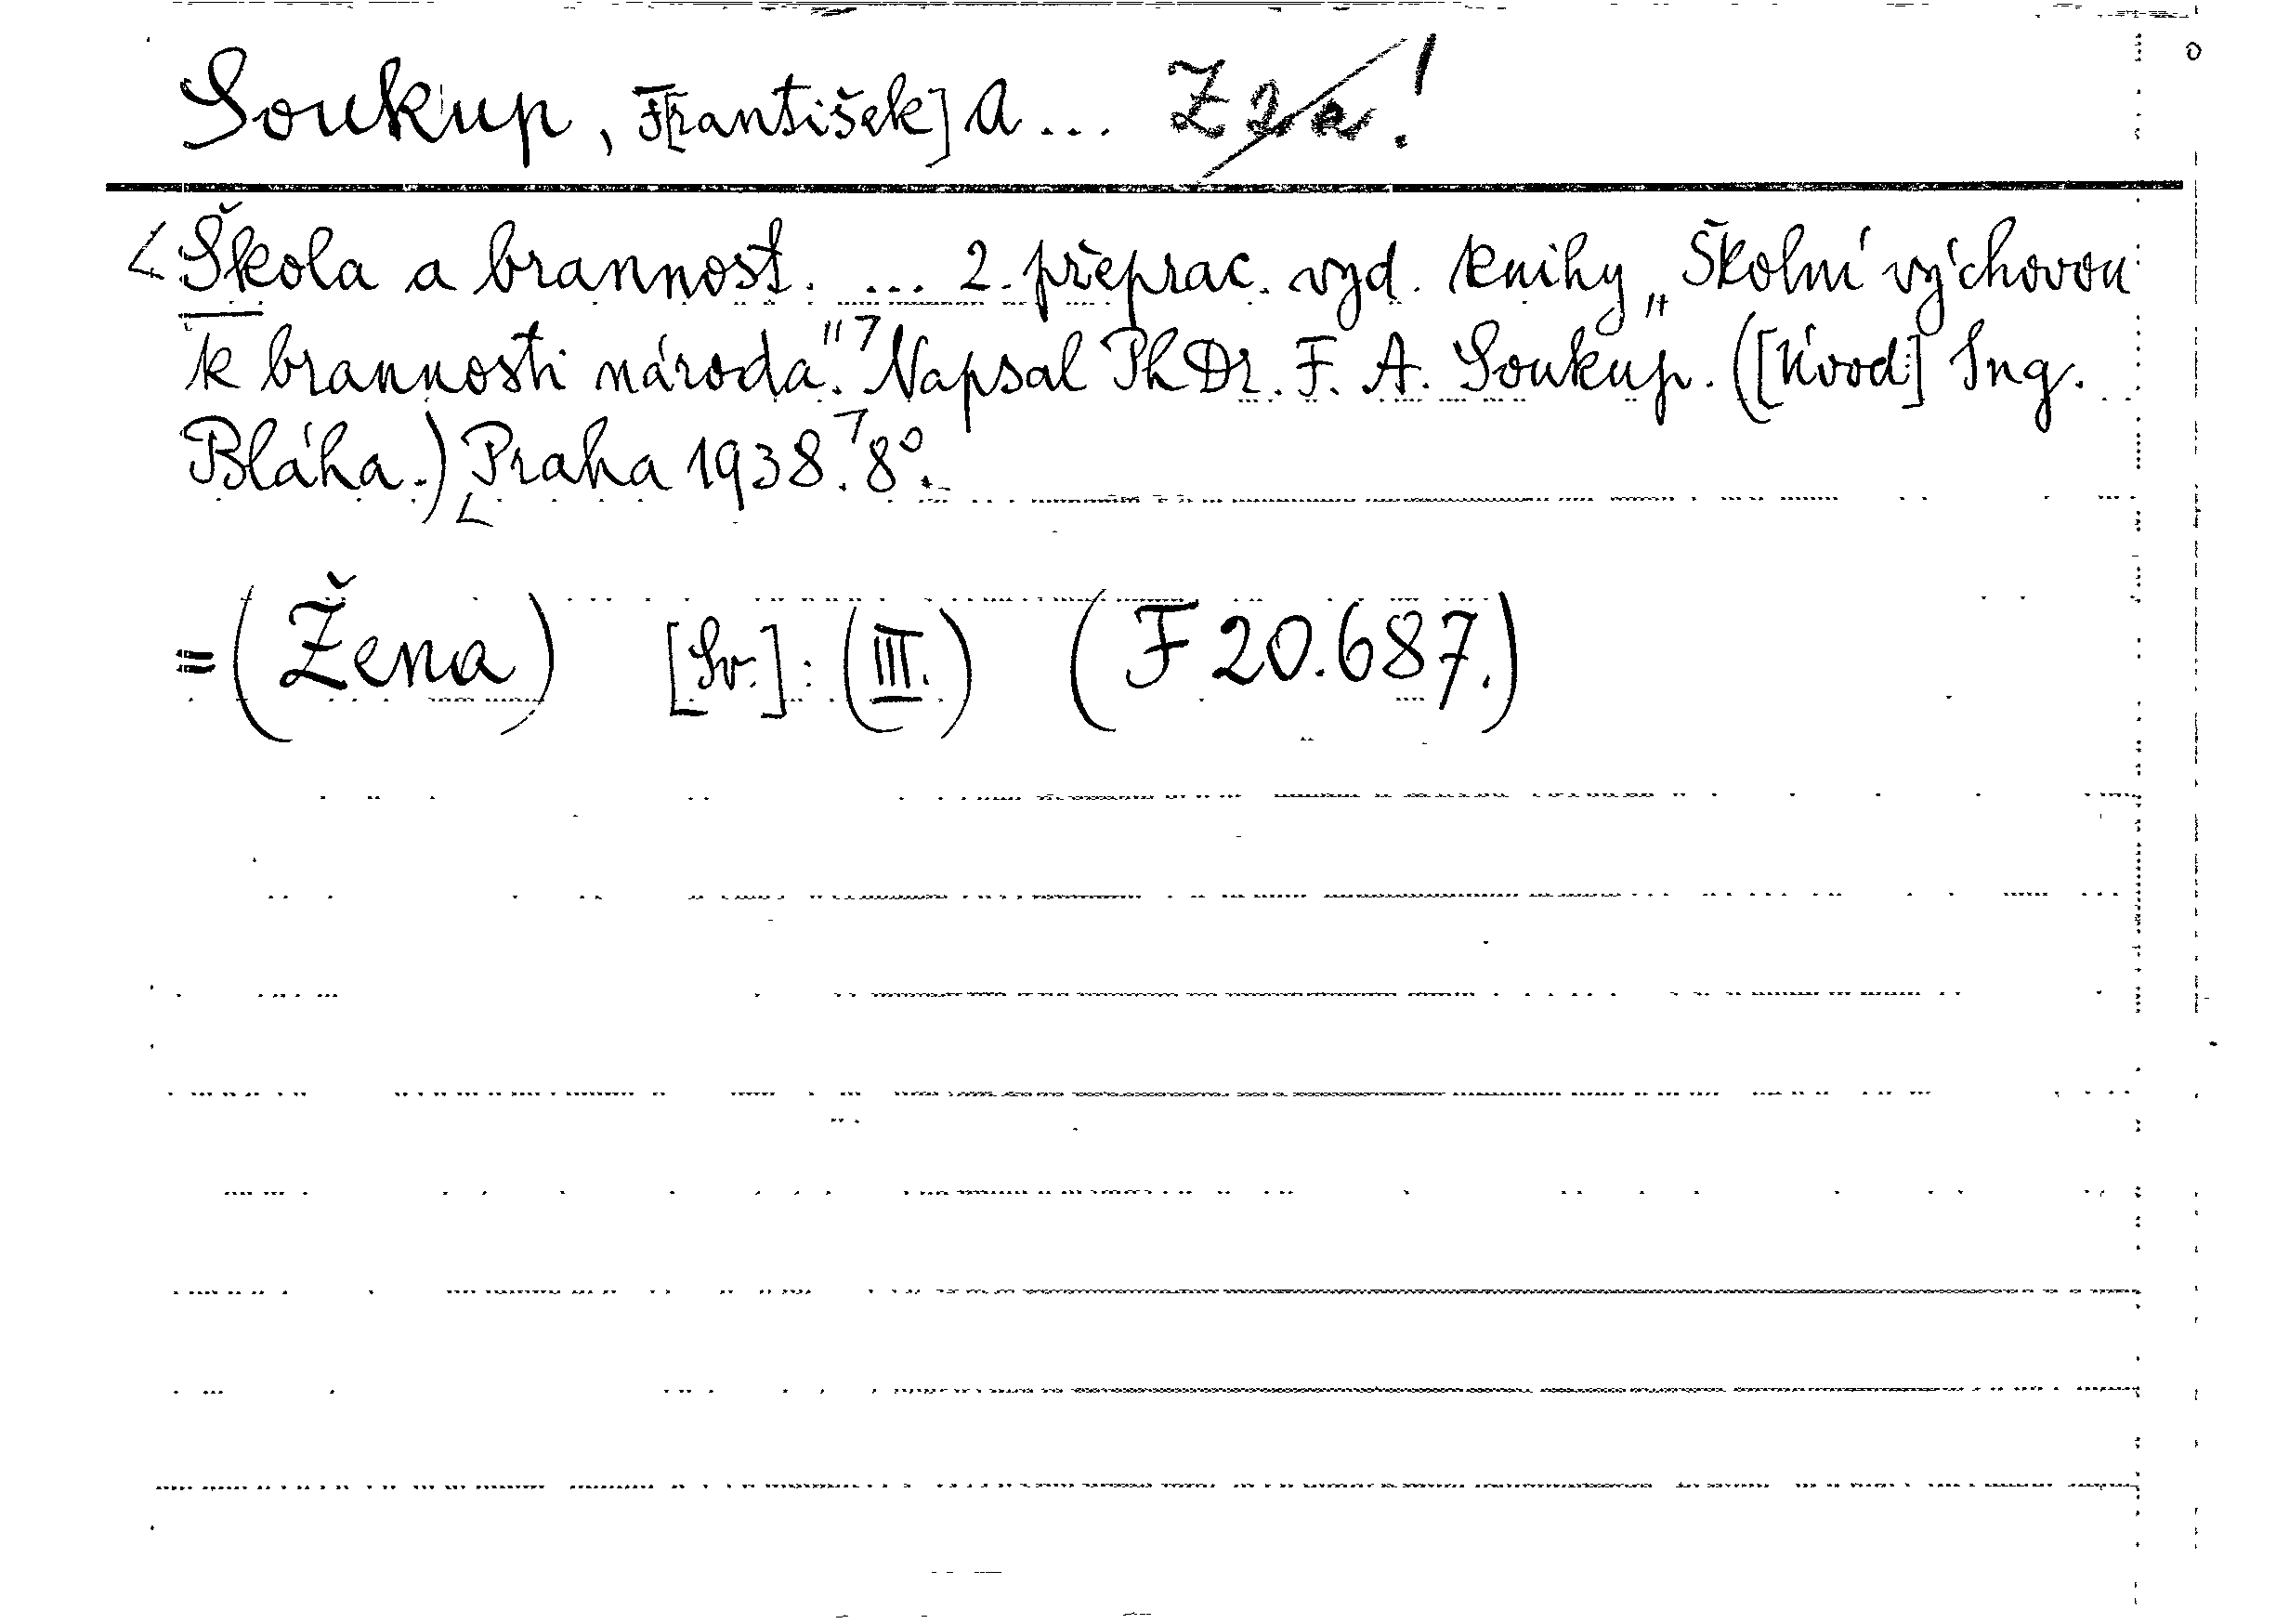 Soukup, F[rantišek] A... Z 2a!
Škola a brannost. ... 2. přeprac. vyd. knihy „Školní výchovou
k brannosti národa." Napsal PhDr. F. A. Soukup. ([Úvod:] Ing.
Bláha.) Praha 1938. 8°.
=(Žena) [Sv.]: (III.) (F 20.687.)